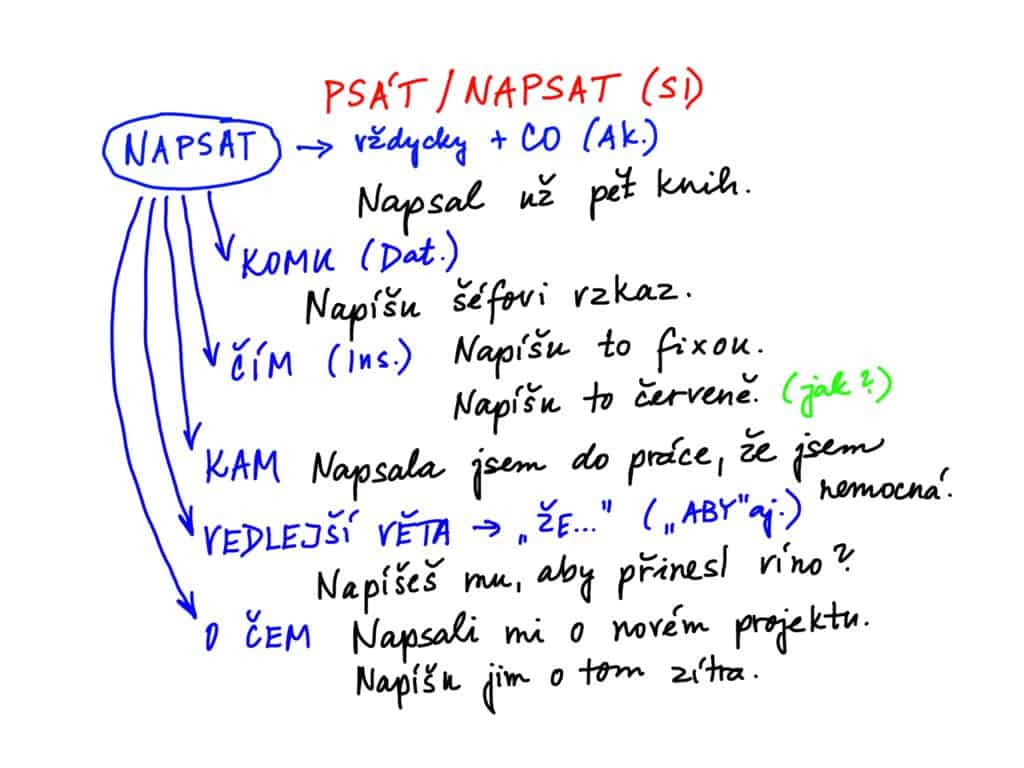 PSÁT / NAPSAT (SI)
NAPSAT → vždycky + CO (Ak.)
Napsal už pět knih.
KOMU (Dat.)
Napíšu šéfovi vzkaz.
ČÍM (Ins.) Napíšu to fixou.
Napíšu to červeně. (jak?)
KAM Napsala jsem do práce, že jsem
nemocná.
VEDLEJŠÍ VĚTA → „ŽE..." („ABY" aj.)
Napíšeš mu, aby přinesl víno?
O ČEM Napsali mi o novém projektu.
Napíšu jim o tom zítra.